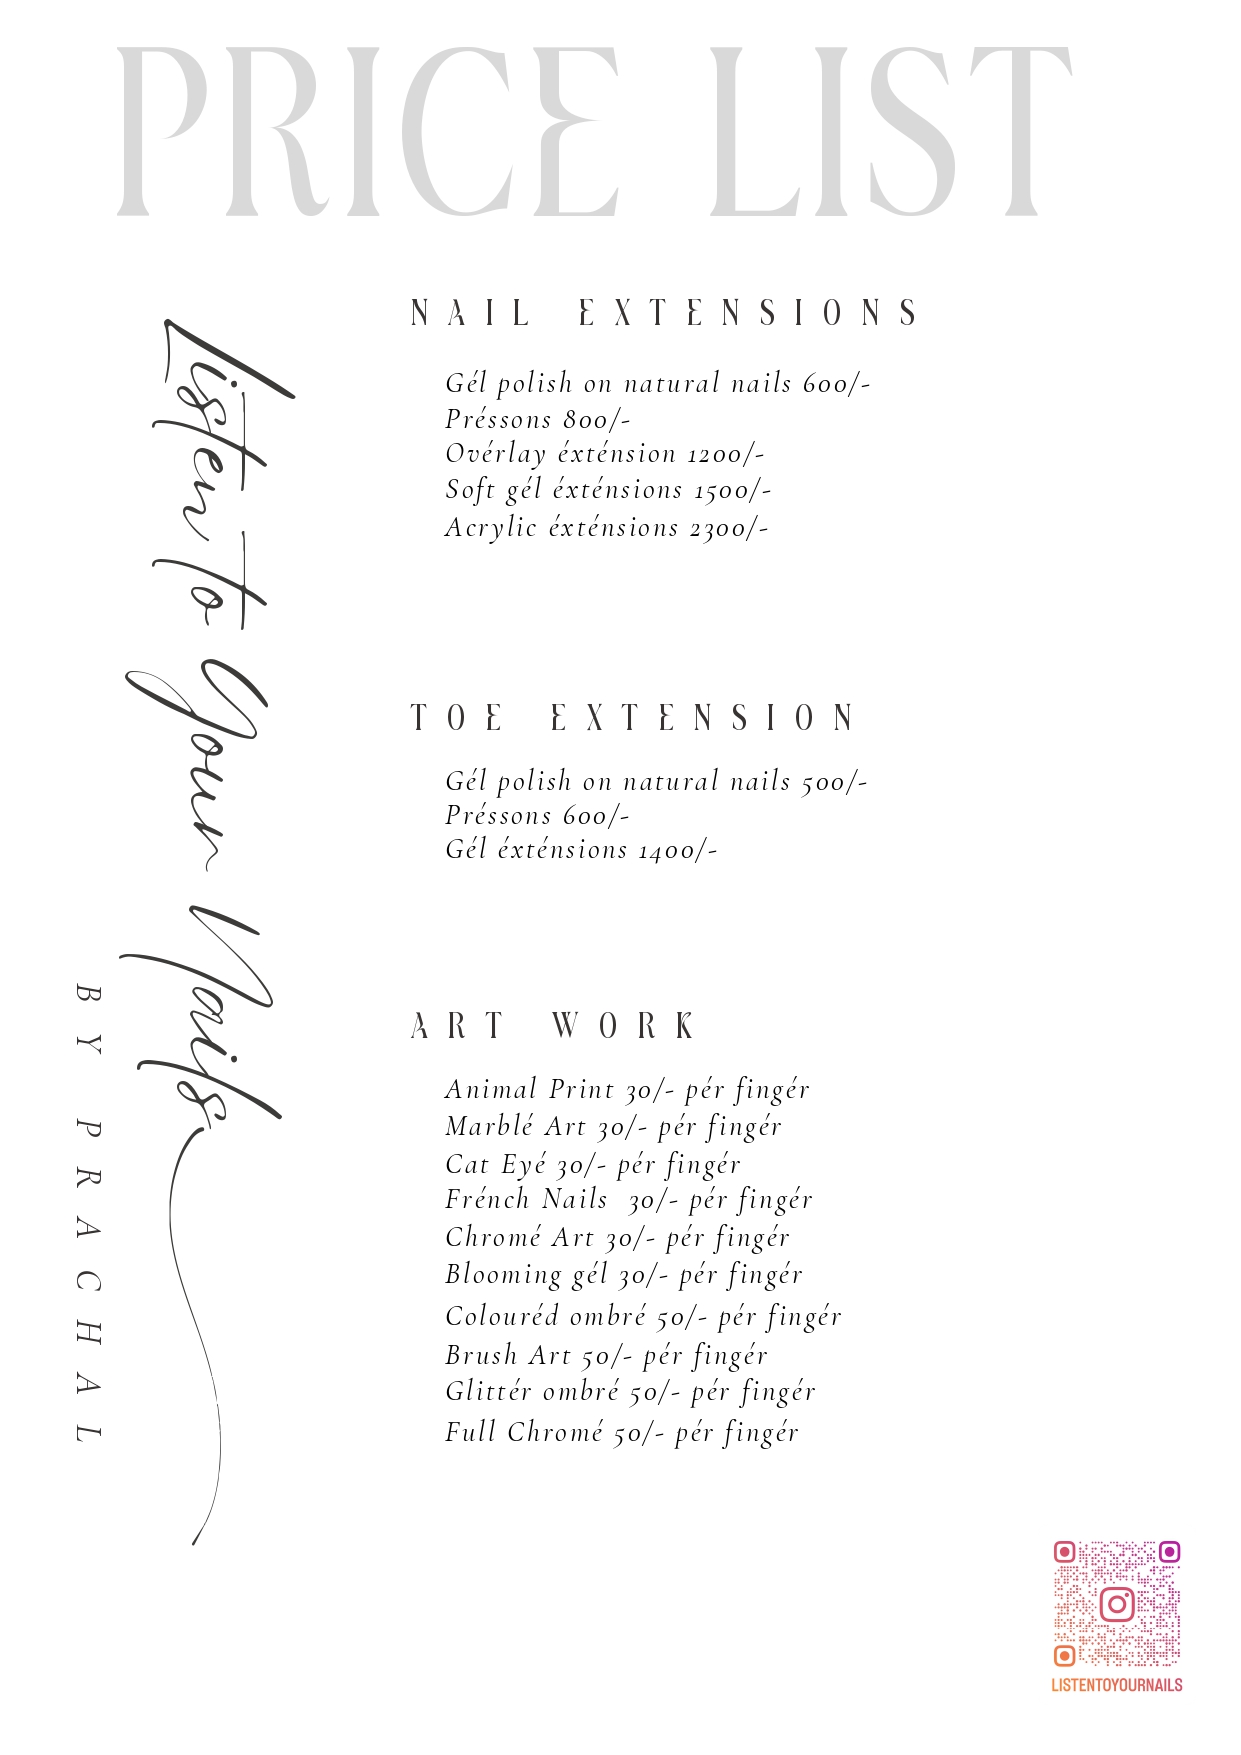 PRICE LIST
Listen to Your Nails
BY PRACHAL
NAIL EXTENSIONS
Gél polish on natural nails 600/-
Préssons 800/-
Ovérlay éxténsion 1200/-
Soft gél éxténsions 1500/-
Acrylic éxténsions 2300/-
TOE EXTENSION
Gél polish on natural nails 500/-
Préssons 600/-
Gél éxténsions 1400/-
ART WORK
Animal Print 30/- pér fingér
Marblé Art 30/- pér fingér
Cat Eyé 30/- pér fingér
Frénch Nails  30/- pér fingér
Chromé Art 30/- pér fingér
Blooming gél 30/- pér fingér
Colouréd ombré 50/- pér fingér
Brush Art 50/- pér fingér
Glittér ombré 50/- pér fingér
Full Chromé 50/- pér fingér
LISTENTOYOURNAILS